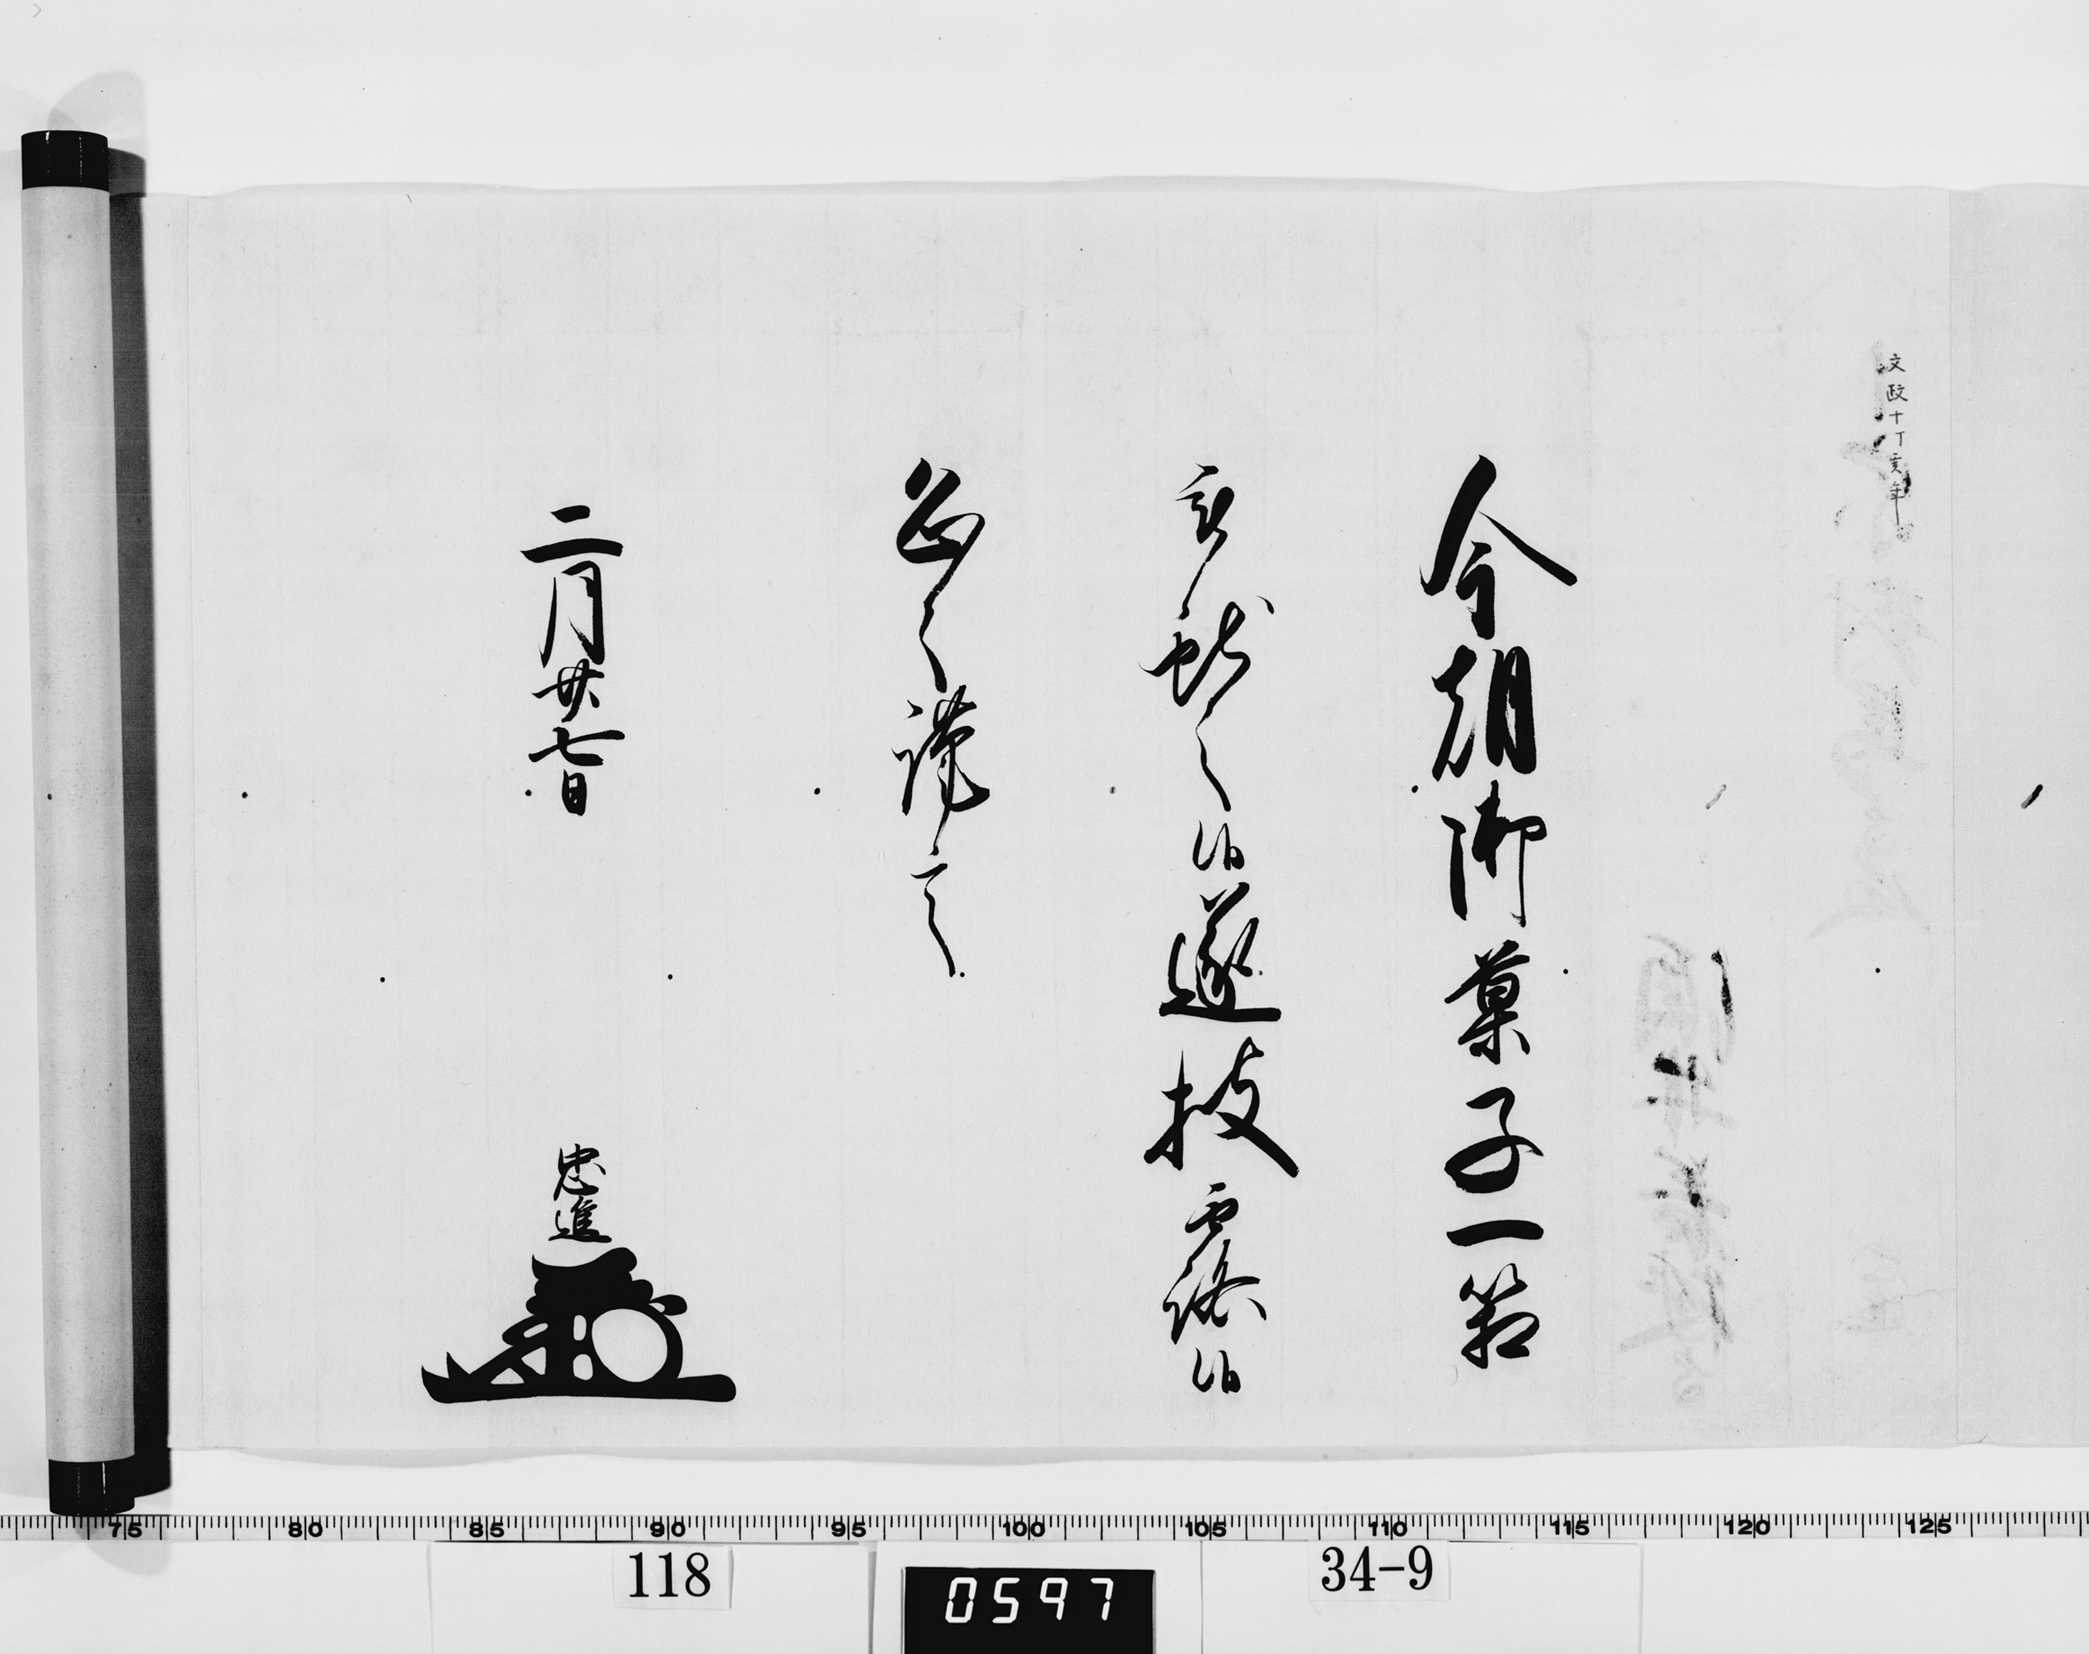 文政十丁亥年
今朝御菓子一箱
被献之候遂披露候
恐々謹言
二月廿七日
忠進
75 80 85 90 95 100 105 110 115 120 125
118
0597
34-9